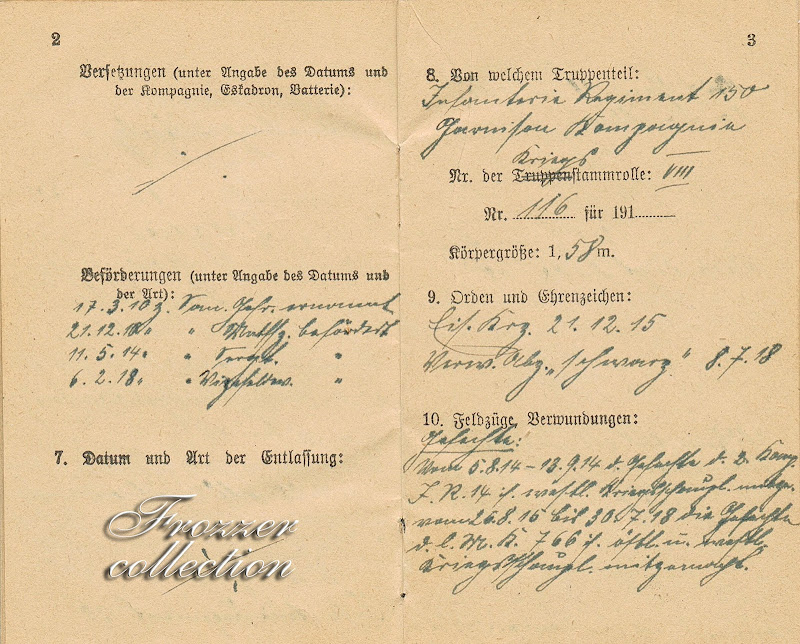 2
Versetzungen (unter Angabe des Datums und
der Kompagnie, Eskadron, Batterie):
Beförderungen (unter Angabe des Datums und
der Art):
17.3.10 z. San. Gefr. ernannt
21.12.10 " " befördert
11.5.14. " Sergt. "
6.2.18. " Vizefeldw. "
7. Datum und Art der Entlassung:
Frozzer
collection
3
8. Von welchem Truppenteil:
Infanterie Regiment 150
Garnison Kompagnie
Kriegs
Nr. der Truppenstammrolle: VIII
Nr. 116 für 191
Körpergröße: 1,58 m.
9. Orden und Ehrenzeichen:
Eis. Krz. 21.12.15
Verw. Abz. „schwarz" 8.7.18
10. Feldzüge, Verwundungen:
Gefechte:
Vom 5.8.14 - 13.9.14 d. Gefechte d. 2. Komp.
I. R. 14 i. westl. Kriegsschaupl. mitge-
vom 26.8.15 bis 30.7.18 die Gefechte
d. l. M. K. 766 i. östl. u. westl.
Kriegsschaupl. mitgemacht.